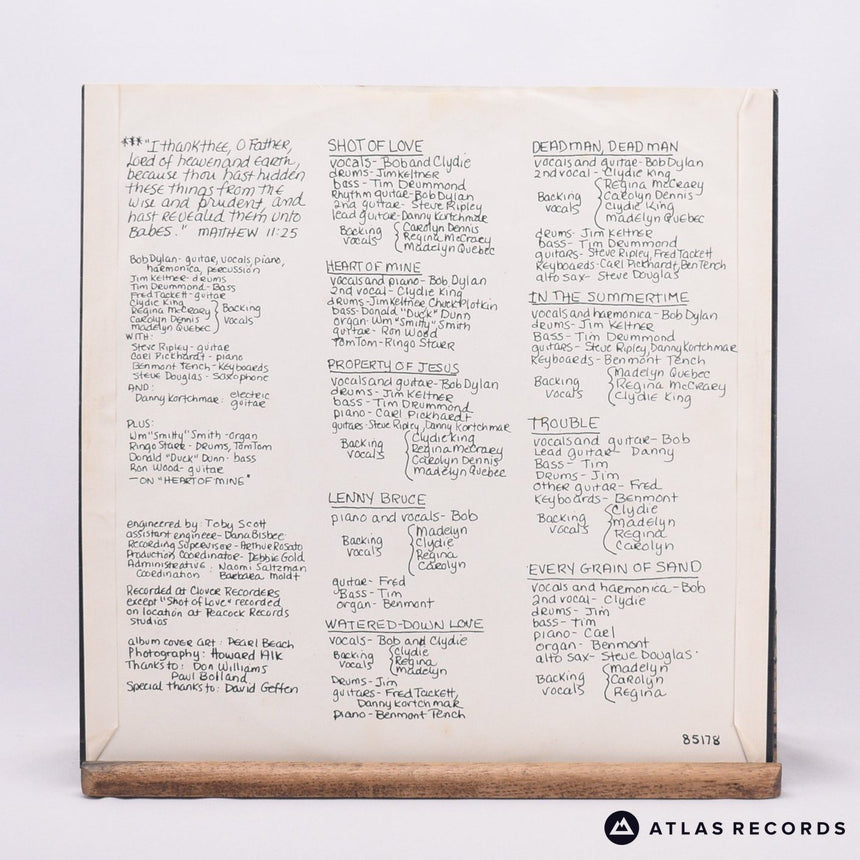 ***"I thank thee, O Father,
Lord of heaven and Earth,
because thou hast hidden
these things from the
wise and prudent, and
hast revealed them unto
babes." MATTHEW 11:25
Bob Dylan - guitar, vocals, piano,
harmonica, percussion
Jim Keltner - drums
Tim Drummond - Bass
Fred Tackett - guitar
Clydie King
Regina McCrary
Carolyn Dennis
madelyn Quebec
Backing
vocals
WITH:
Steve Ripley - guitar
Carl Pickhardt - piano
Benmont Tench - Keyboards
Steve Douglas - Saxophone
AND:
Danny Kortchmar: electric
guitar
PLUS:
Wm "Smitty" Smith - organ
Ringo Starr - Drums, TomTom
Donald "Duck" Dunn - bass
Ron Wood - guitar
— ON "HEART OF MINE"
engineered by: Toby Scott
assistant engineer - Dana Bisbee
Recording Supervisor - Arthur Rosato
Production Coordinator - Debbie Gold
Administrative : Naomi Saltzman
Coordination Barbara Moldt
Recorded at Clover Recorders
except "Shot of Love" recorded
on location at Peacock Records
studios
album cover art : Pearl Beach
Photography: Howard Alk
Thanks to: Don Williams
Paul Bolland
Special thanks to: David Geffen
SHOT OF LOVE
vocals - Bob and Clydie
drums - Jim Keltner
bass - Tim Drummond
Rhythm guitar - Bob Dylan
2nd guitar - Steve Ripley
lead guitar - Danny Kortchmar
Backing
vocals
Carolyn Dennis
Regina McCrary
madelyn Quebec
HEART OF MINE
vocals and piano - Bob Dylan
2nd vocal - Clydie King
drums - Jim Keltner Chuck Plotkin
bass - Donald "Duck" Dunn
organ - Wm "Smitty" Smith
guitar - Ron Wood
TomTom - Ringo Starr
PROPERTY OF JESUS
vocals and guitar - Bob Dylan
drums - Jim Keltner
bass - Tim Drummond
piano - Carl Pickhardt
guitars - Steve Ripley, Danny Kortchmar
Backing
vocals
Clydie King
Regina McCrary
Carolyn Dennis
madelyn Quebec
LENNY BRUCE
piano and vocals - Bob
Backing
vocals
Madelyn
Clydie
Regina
Carolyn
guitar - Fred
Bass - Tim
organ - Benmont
WATERED-DOWN LOVE
vocals - Bob and Clydie
Backing
vocals
Clydie
Regina
madelyn
Drums - Jim
guitars - Fred Tackett,
Danny Kortchmar
piano - Benmont Tench
DEAD MAN, DEAD MAN
vocals and guitar - Bob Dylan
2nd vocal - Clydie King
Backing
vocals
Regina McCrary
Carolyn Dennis
Clydie King
madelyn Quebec
drums - Jim Keltner
bass - Tim Drummond
guitars - Steve Ripley, Fred Tackett
Keyboards - Carl Pickhardt, Ben Tench
alto sax - Steve Douglas
IN THE SUMMERTIME
vocals and harmonica - Bob Dylan
drums - Jim Keltner
Bass - Tim Drummond
guitars - Steve Ripley, Danny Kortchmar
Keyboards - Benmont Tench
Backing
vocals
Madelyn Quebec
Regina McCrary
Clydie King
TROUBLE
vocals and guitar - Bob
Lead guitar - Danny
Bass - Tim
Drums - Jim
other guitar - Fred
Keyboards - Benmont
Backing
vocals
Clydie
madelyn
Regina
Carolyn
EVERY GRAIN OF SAND
vocals and harmonica - Bob
2nd vocal - Clydie
drums - Jim
bass - Tim
piano - Carl
organ - Benmont
alto sax - Steve Douglas
Backing
vocals
madelyn
Carolyn
Regina
85178
ATLAS RECORDS